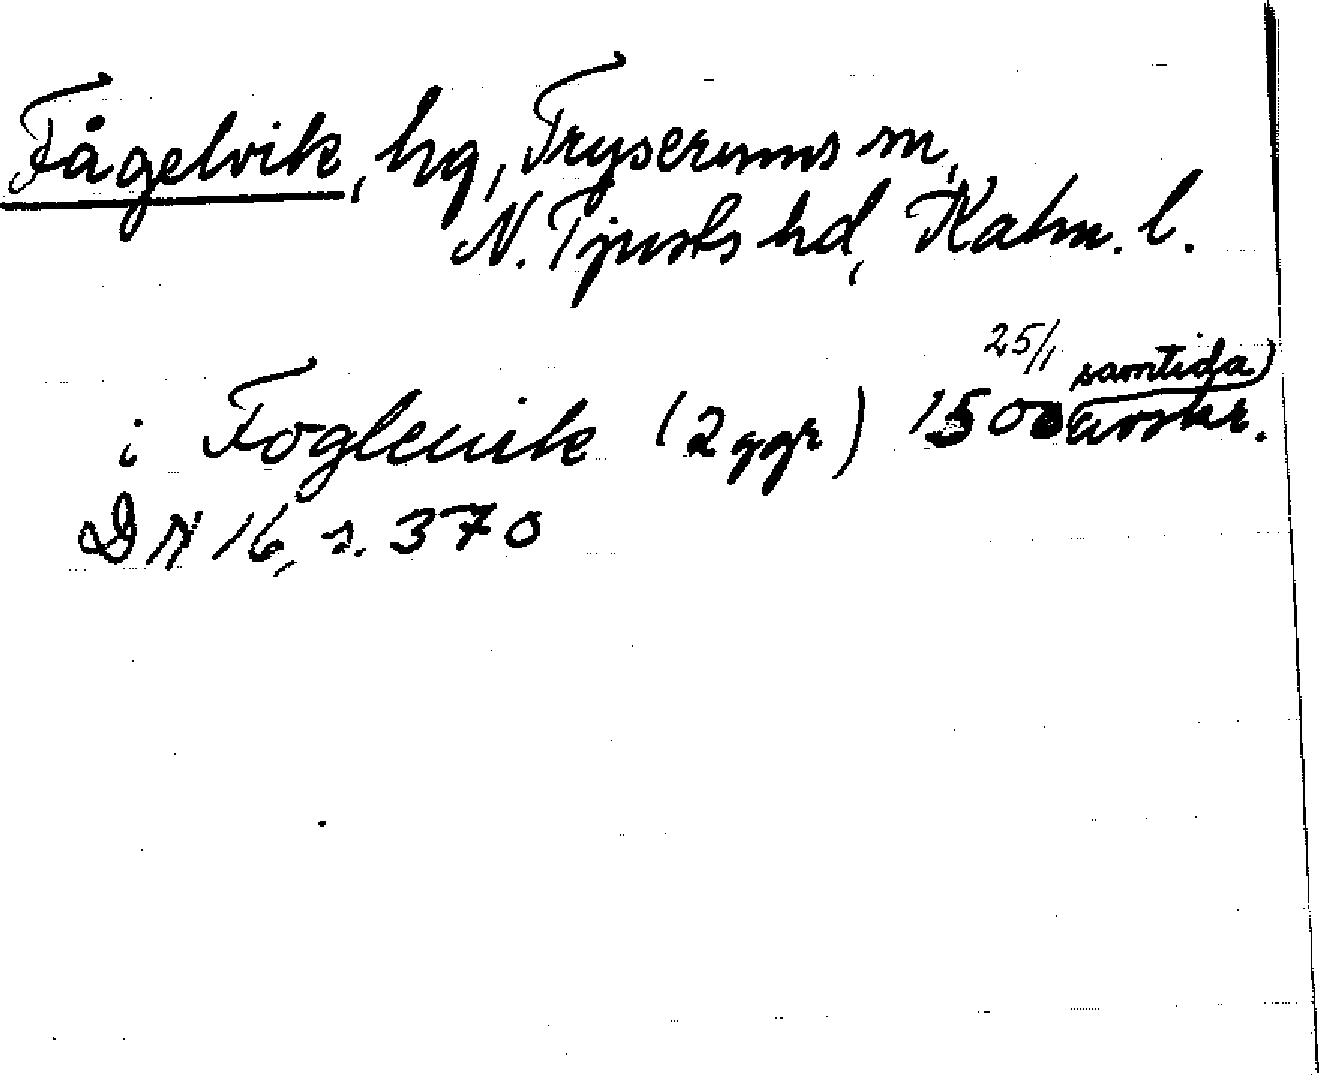 Fågelvik, hg, Tryserums sn,
N. Tjusts hd, Kalm. l.
i Foglewik (2 ggr) 25/1 1500 samtida avskr.
DN 16, s. 370